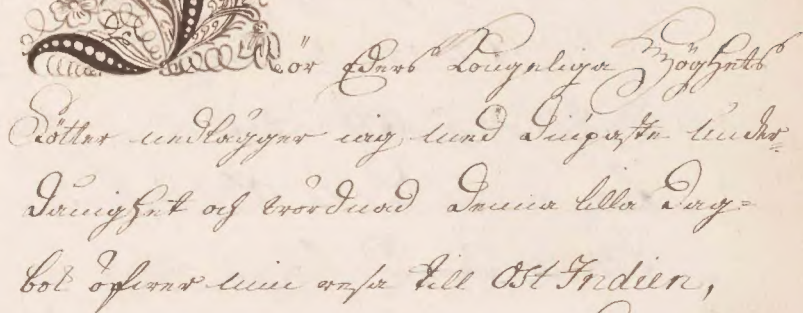 För Eders Kongeliga Höghets
Fötter nedlägger iag, med diupaste under-
dånighet och wördnad denna lilla Dag=
bok öfwer min resa till Ost Indien,